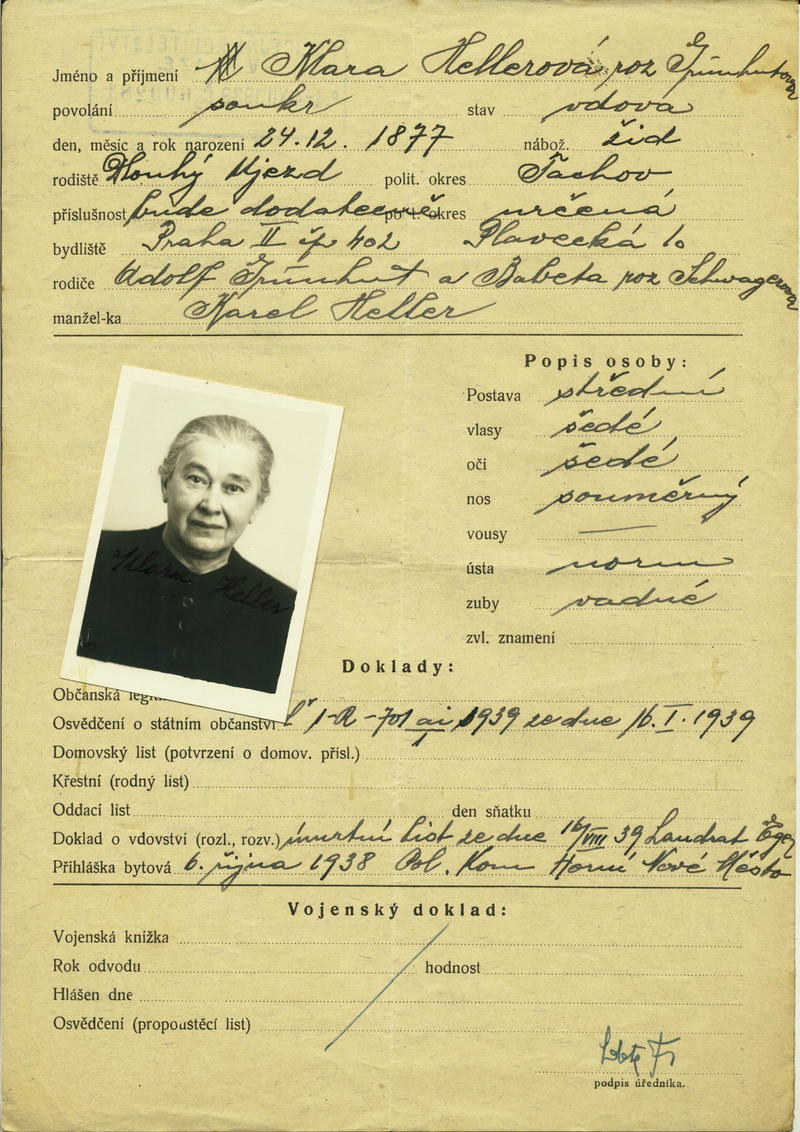 Jméno a příjmení Klara Hellerová roz Grünhutova
povolání soukr stav vdova
den, měsíc a rok narození 24.12. 1877 nábož. žid
rodiště Dlouhý Ujezd polit. okres Tachov
příslušnost bude dodatečně polit. okres určená
bydliště Praha II čp 402 Plavecká 10
rodiče Adolf Grünhut a Babeta roz Schwagerova
manžel-ka Karel Heller
Popis osoby:
Postava střední
vlasy šedé
oči šedé
nos souměrný
vousy —
ústa norm
zuby vadné
zvl. znamení
Klara Heller
Doklady:
Občanská legiti
Osvědčení o státním občanství 1939 ze dne 16. I. 1939
Domovský list (potvrzení o domov. přísl.)
Křestní (rodný list)
Oddací list den sňatku
Doklad o vdovství (rozl., rozv.) úmrtní list ze dne 16/VIII 39 Landrat Eger
Přihláška bytová 6. října 1938 Pol. Kom Horní Nové Město
Vojenský doklad:
Vojenská knížka
Rok odvodu hodnost
Hlášen dne
Osvědčení (propouštěcí list)
podpis úředníka.